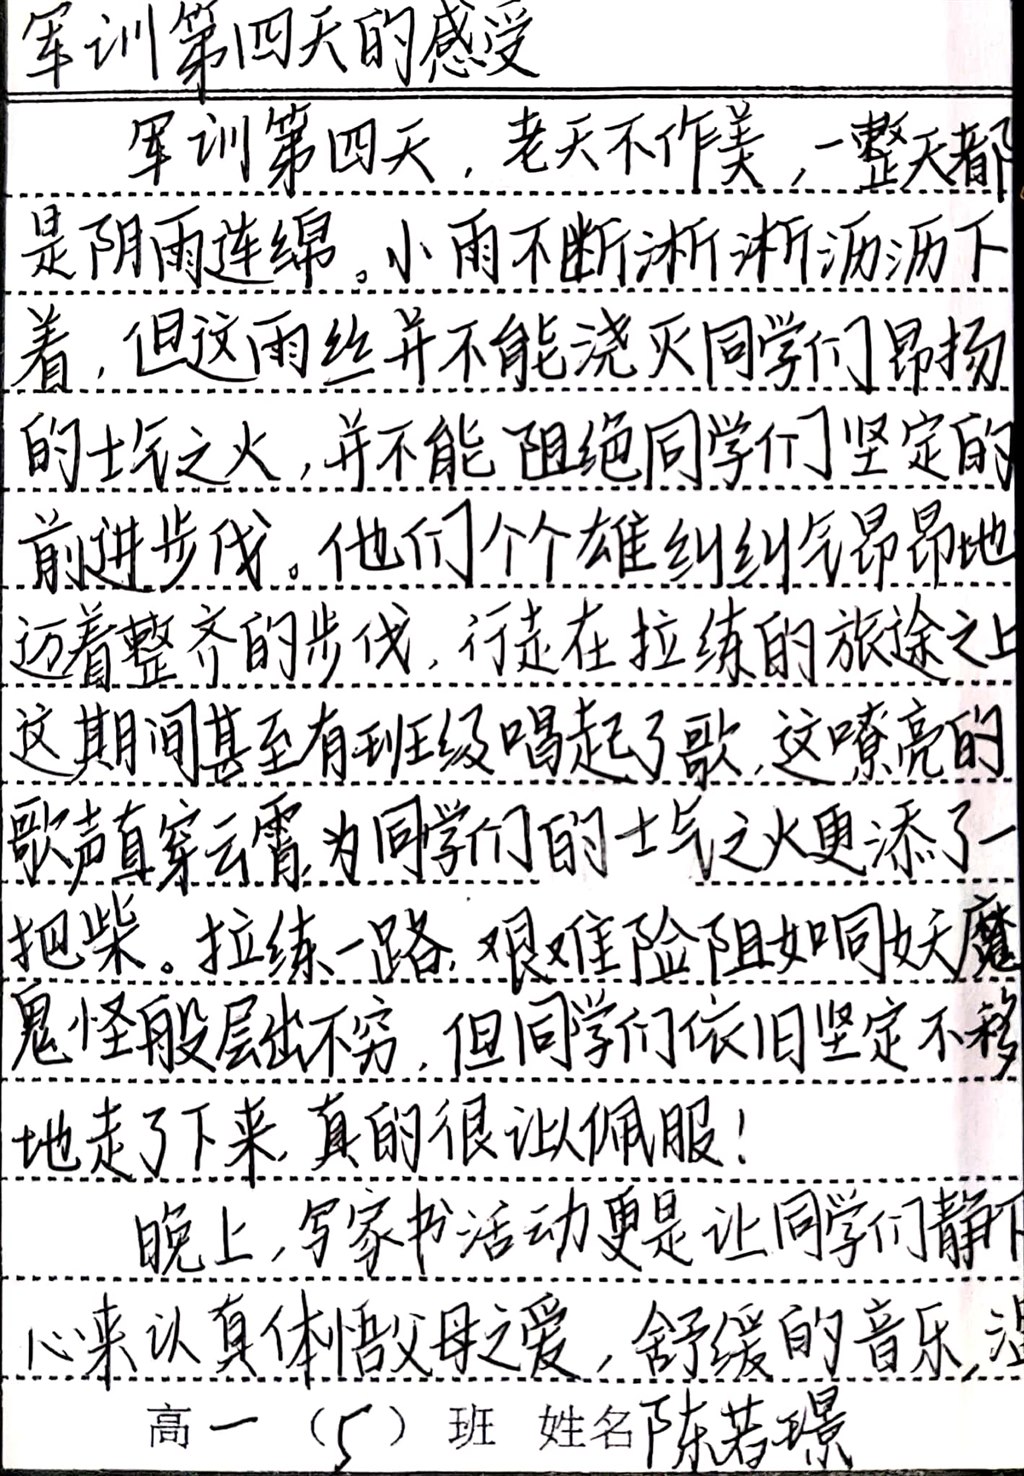 军训第四天的感受
军训第四天，老天不作美，一整天都
是阴雨连绵。小雨不断淅淅沥沥下
着，但这雨丝并不能浇灭同学们昂扬
的士气之火，并不能阻绝同学们坚定的
前进步伐。他们个个雄纠纠气昂昂地
迈着整齐的步伐，行走在拉练的旅途之上
这期间甚至有班级唱起了歌，这嘹亮的
歌声直穿云霄，为同学们的士气之火更添了一
把柴。拉练一路，艰难险阻如同妖魔
鬼怪般层出不穷，但同学们依旧坚定不移
地走了下来，真的很让人佩服！
晚上，写家书活动更是让同学们静下
心来认真体悟父母之爱，舒缓的音乐，
高一（5）班 姓名陈若璟